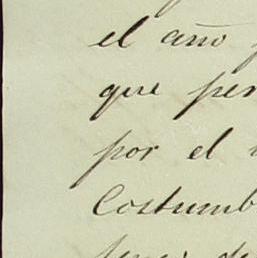 el año
que per
por el
Costumb
de